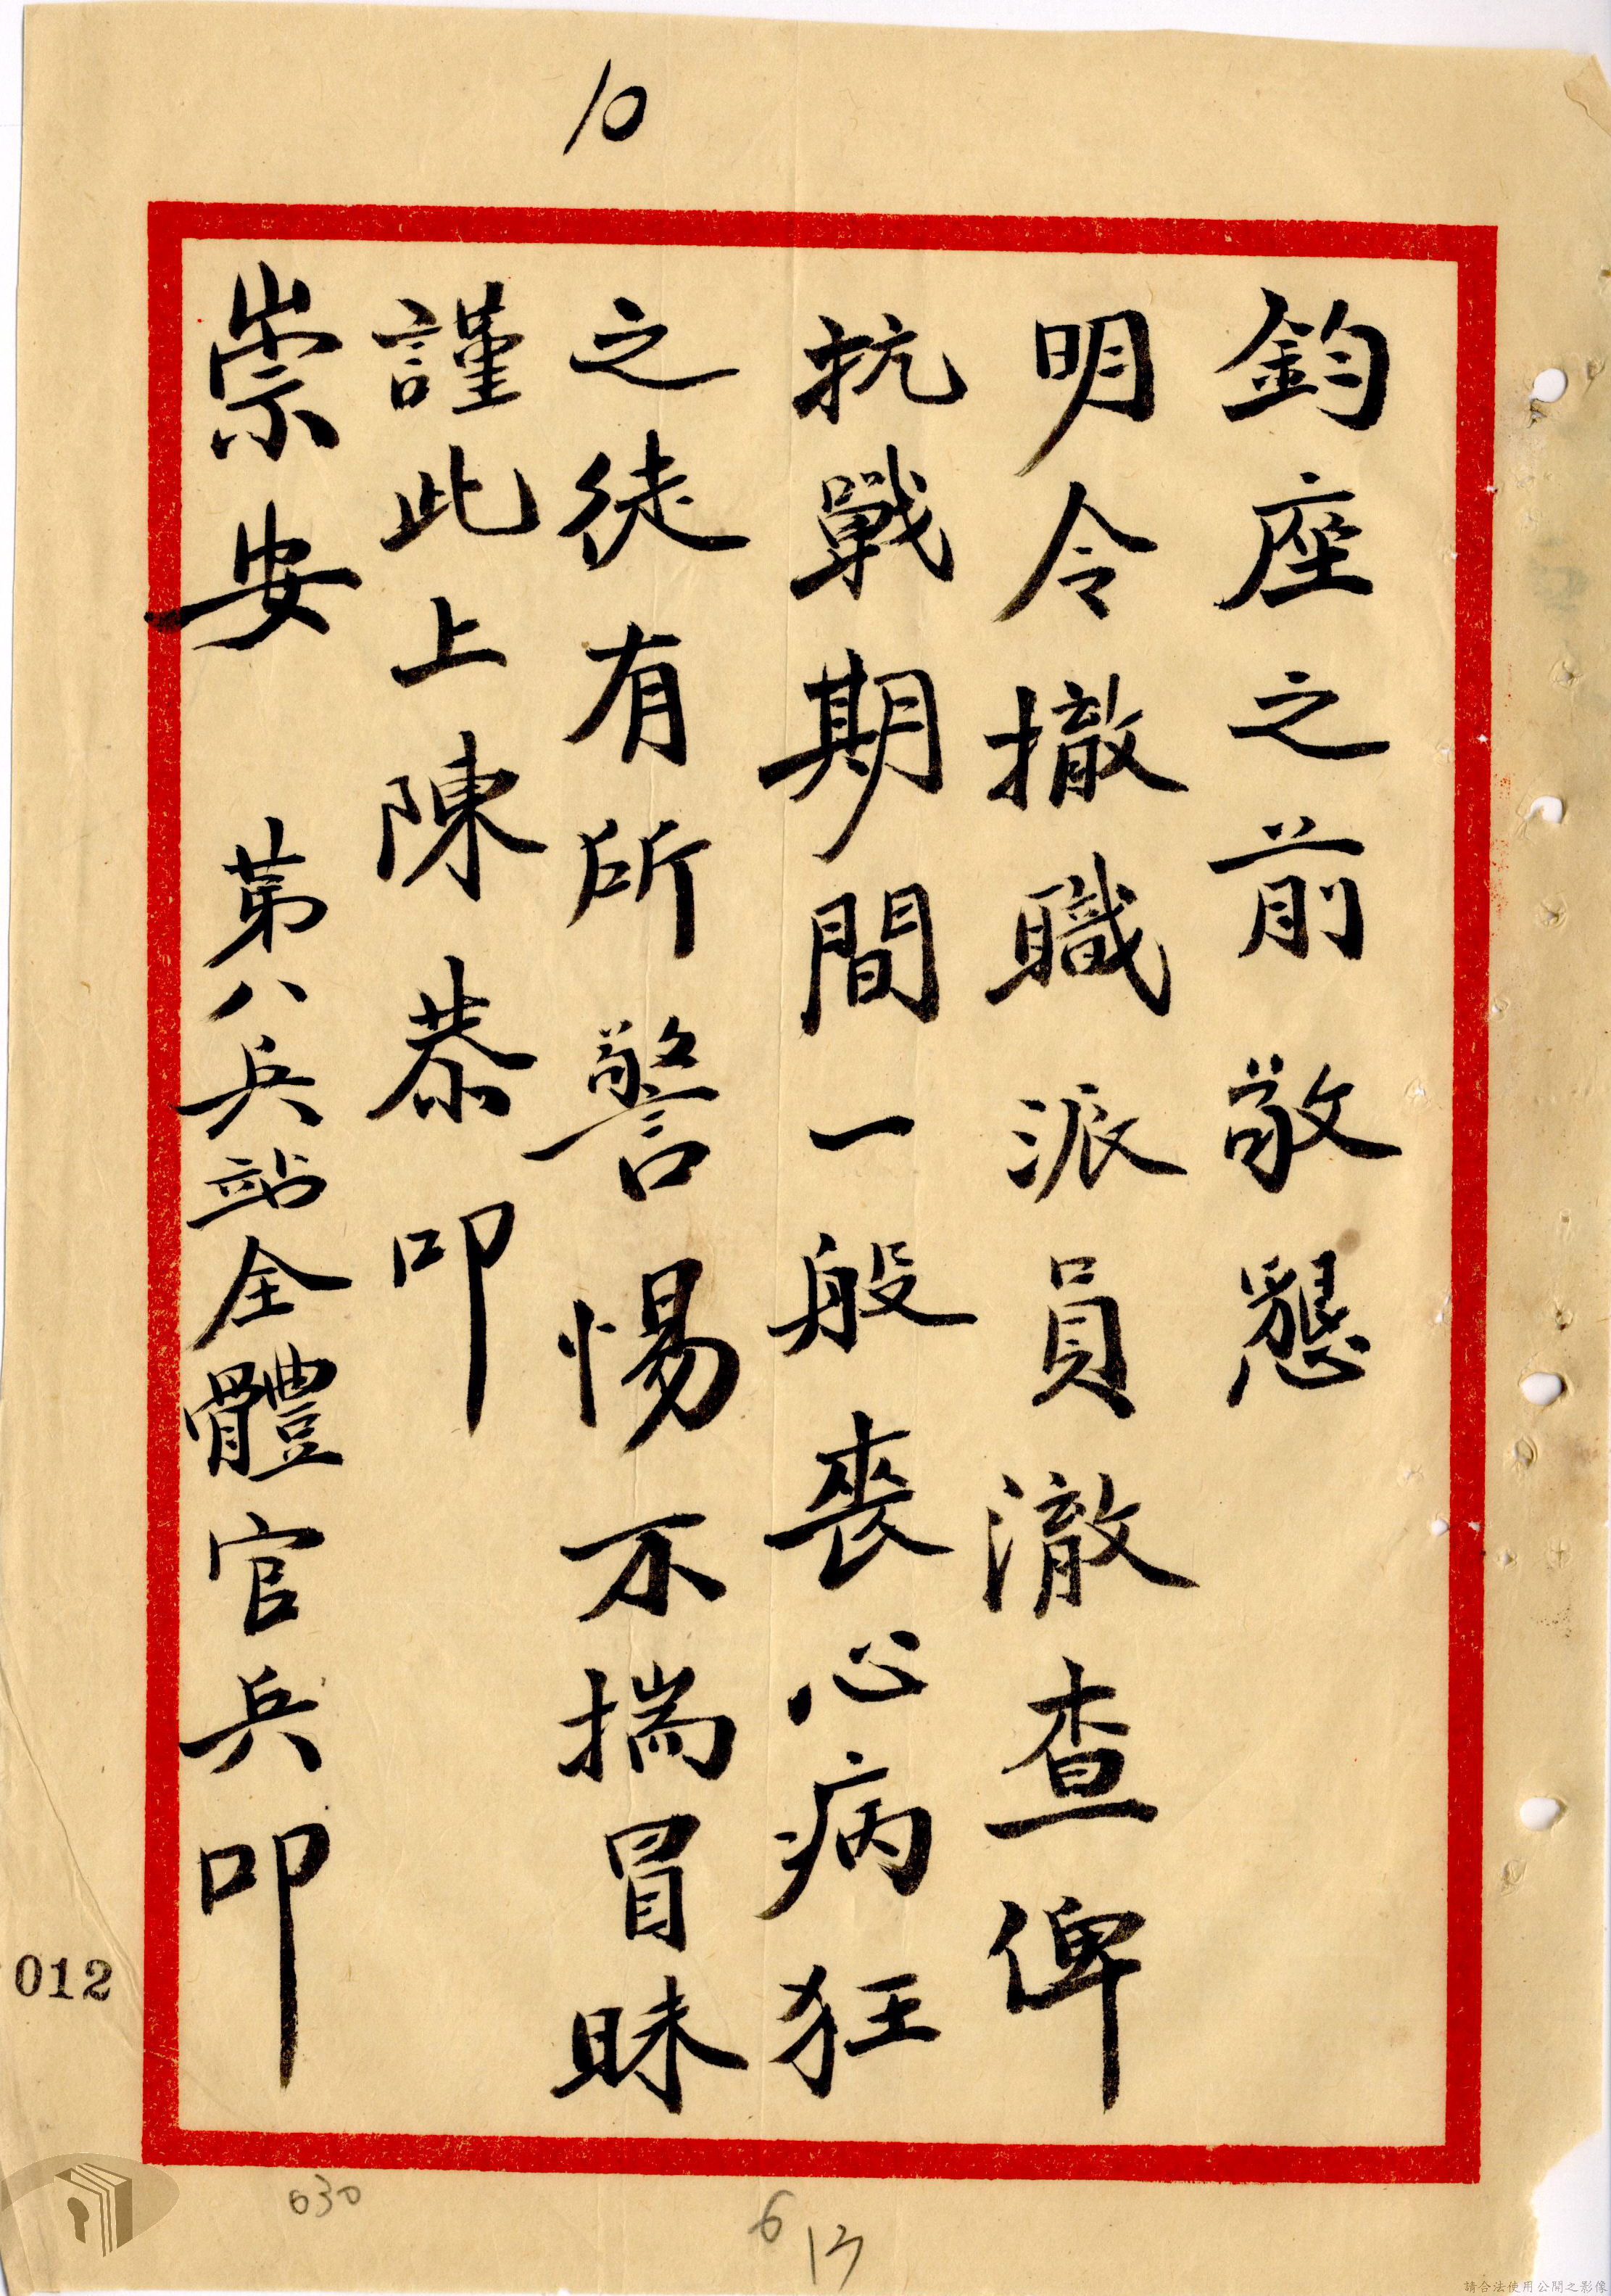 10
鈞座之前敬懇
明令撤職派員澈查俾
抗戰期間一般喪心病狂
之徒有所警惕不揣冒昧
謹此上陳恭叩
崇安 第八兵站全體官兵叩
012
030
6
13
請合法使用公開之影像